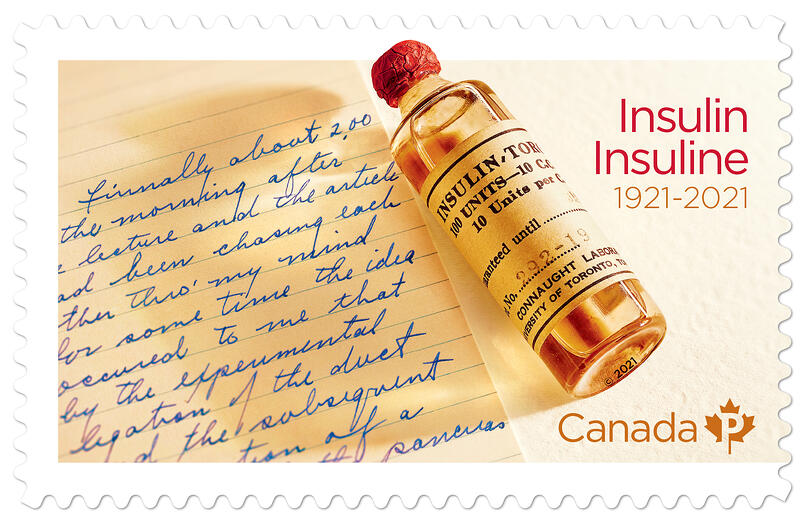 finnally about 2.00
the morning after
lecture and the article
ad been chasing each
ther thro' my mind
for some time the idea
occured to me that
by the experimental
ligation of the duct
d the subsequent
tion of a
the pancreas
INSULIN-TOR
100 UNITS—10 C.C
10 Units per C
aranteed until
No. 292-19
CONNAUGHT LABORA
VERSITY OF TORONTO, TO
© 2021
Insulin
Insuline
1921-2021
Canada P